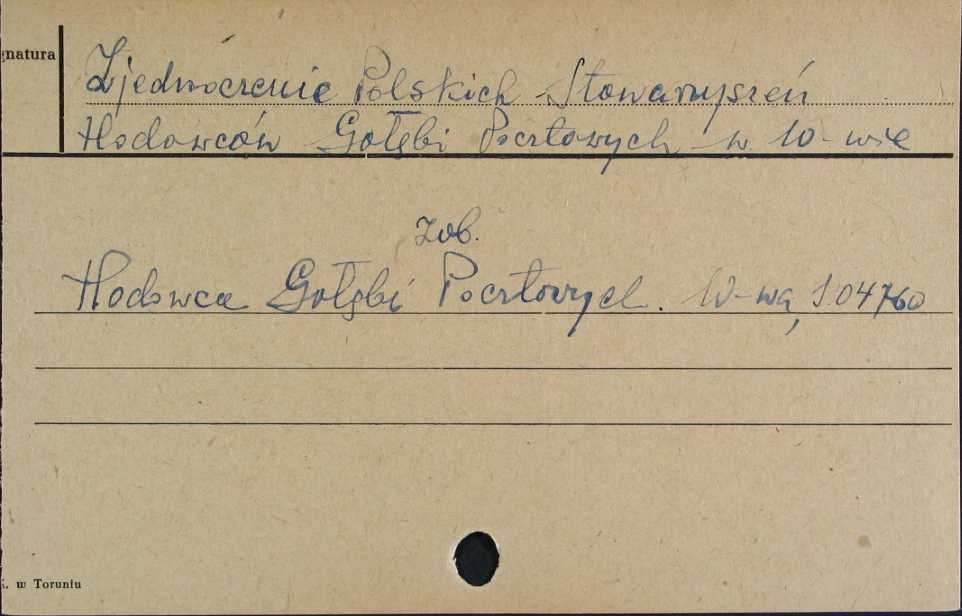 gnatura
Zjednoczenie Polskich Stowarzyszeń
Hodowców Gołębi Pocztowych w W-wie
zob.
Hodowca Gołębi Pocztowych. W-wa, 104760
K. w Toruniu